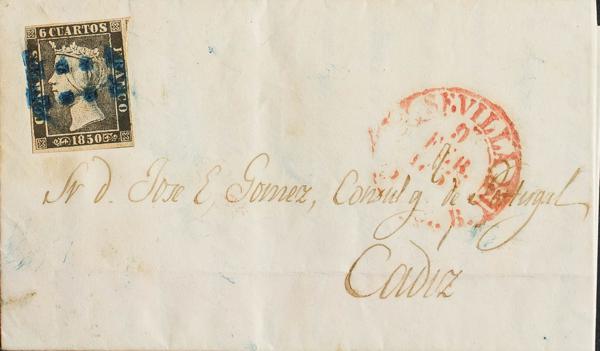 6 CUARTOS
CORREOS
FRANCO
1850
SEVILLA
Sr d. Jose E, Gomez, Consul g. de Portugal
Cadiz